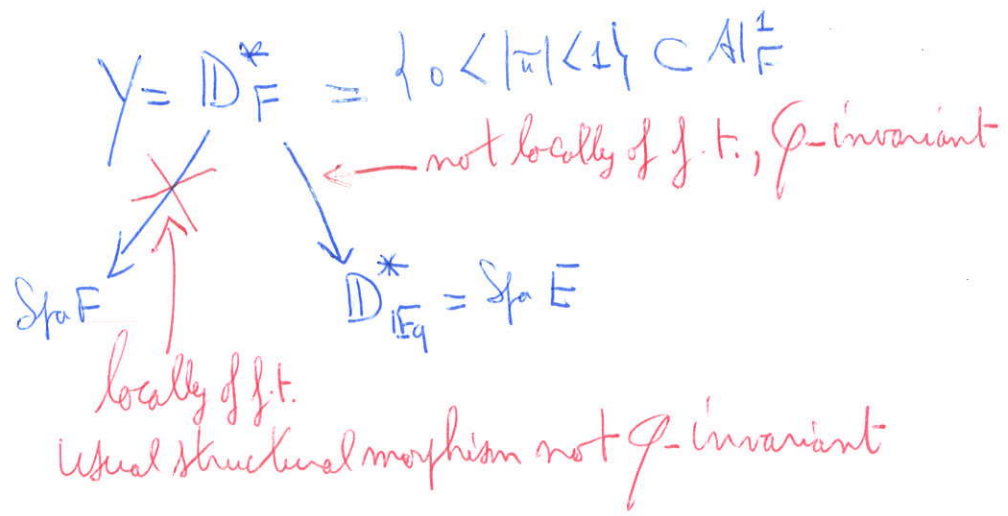 Y = 𝔻*_F = {0 < |π| < 1} ⊂ 𝔸¹_F
not locally of f.t., φ-invariant
Spa F
𝔻*_𝔽q = Spa E
locally of f.t.
usual structural morphism not φ-invariant